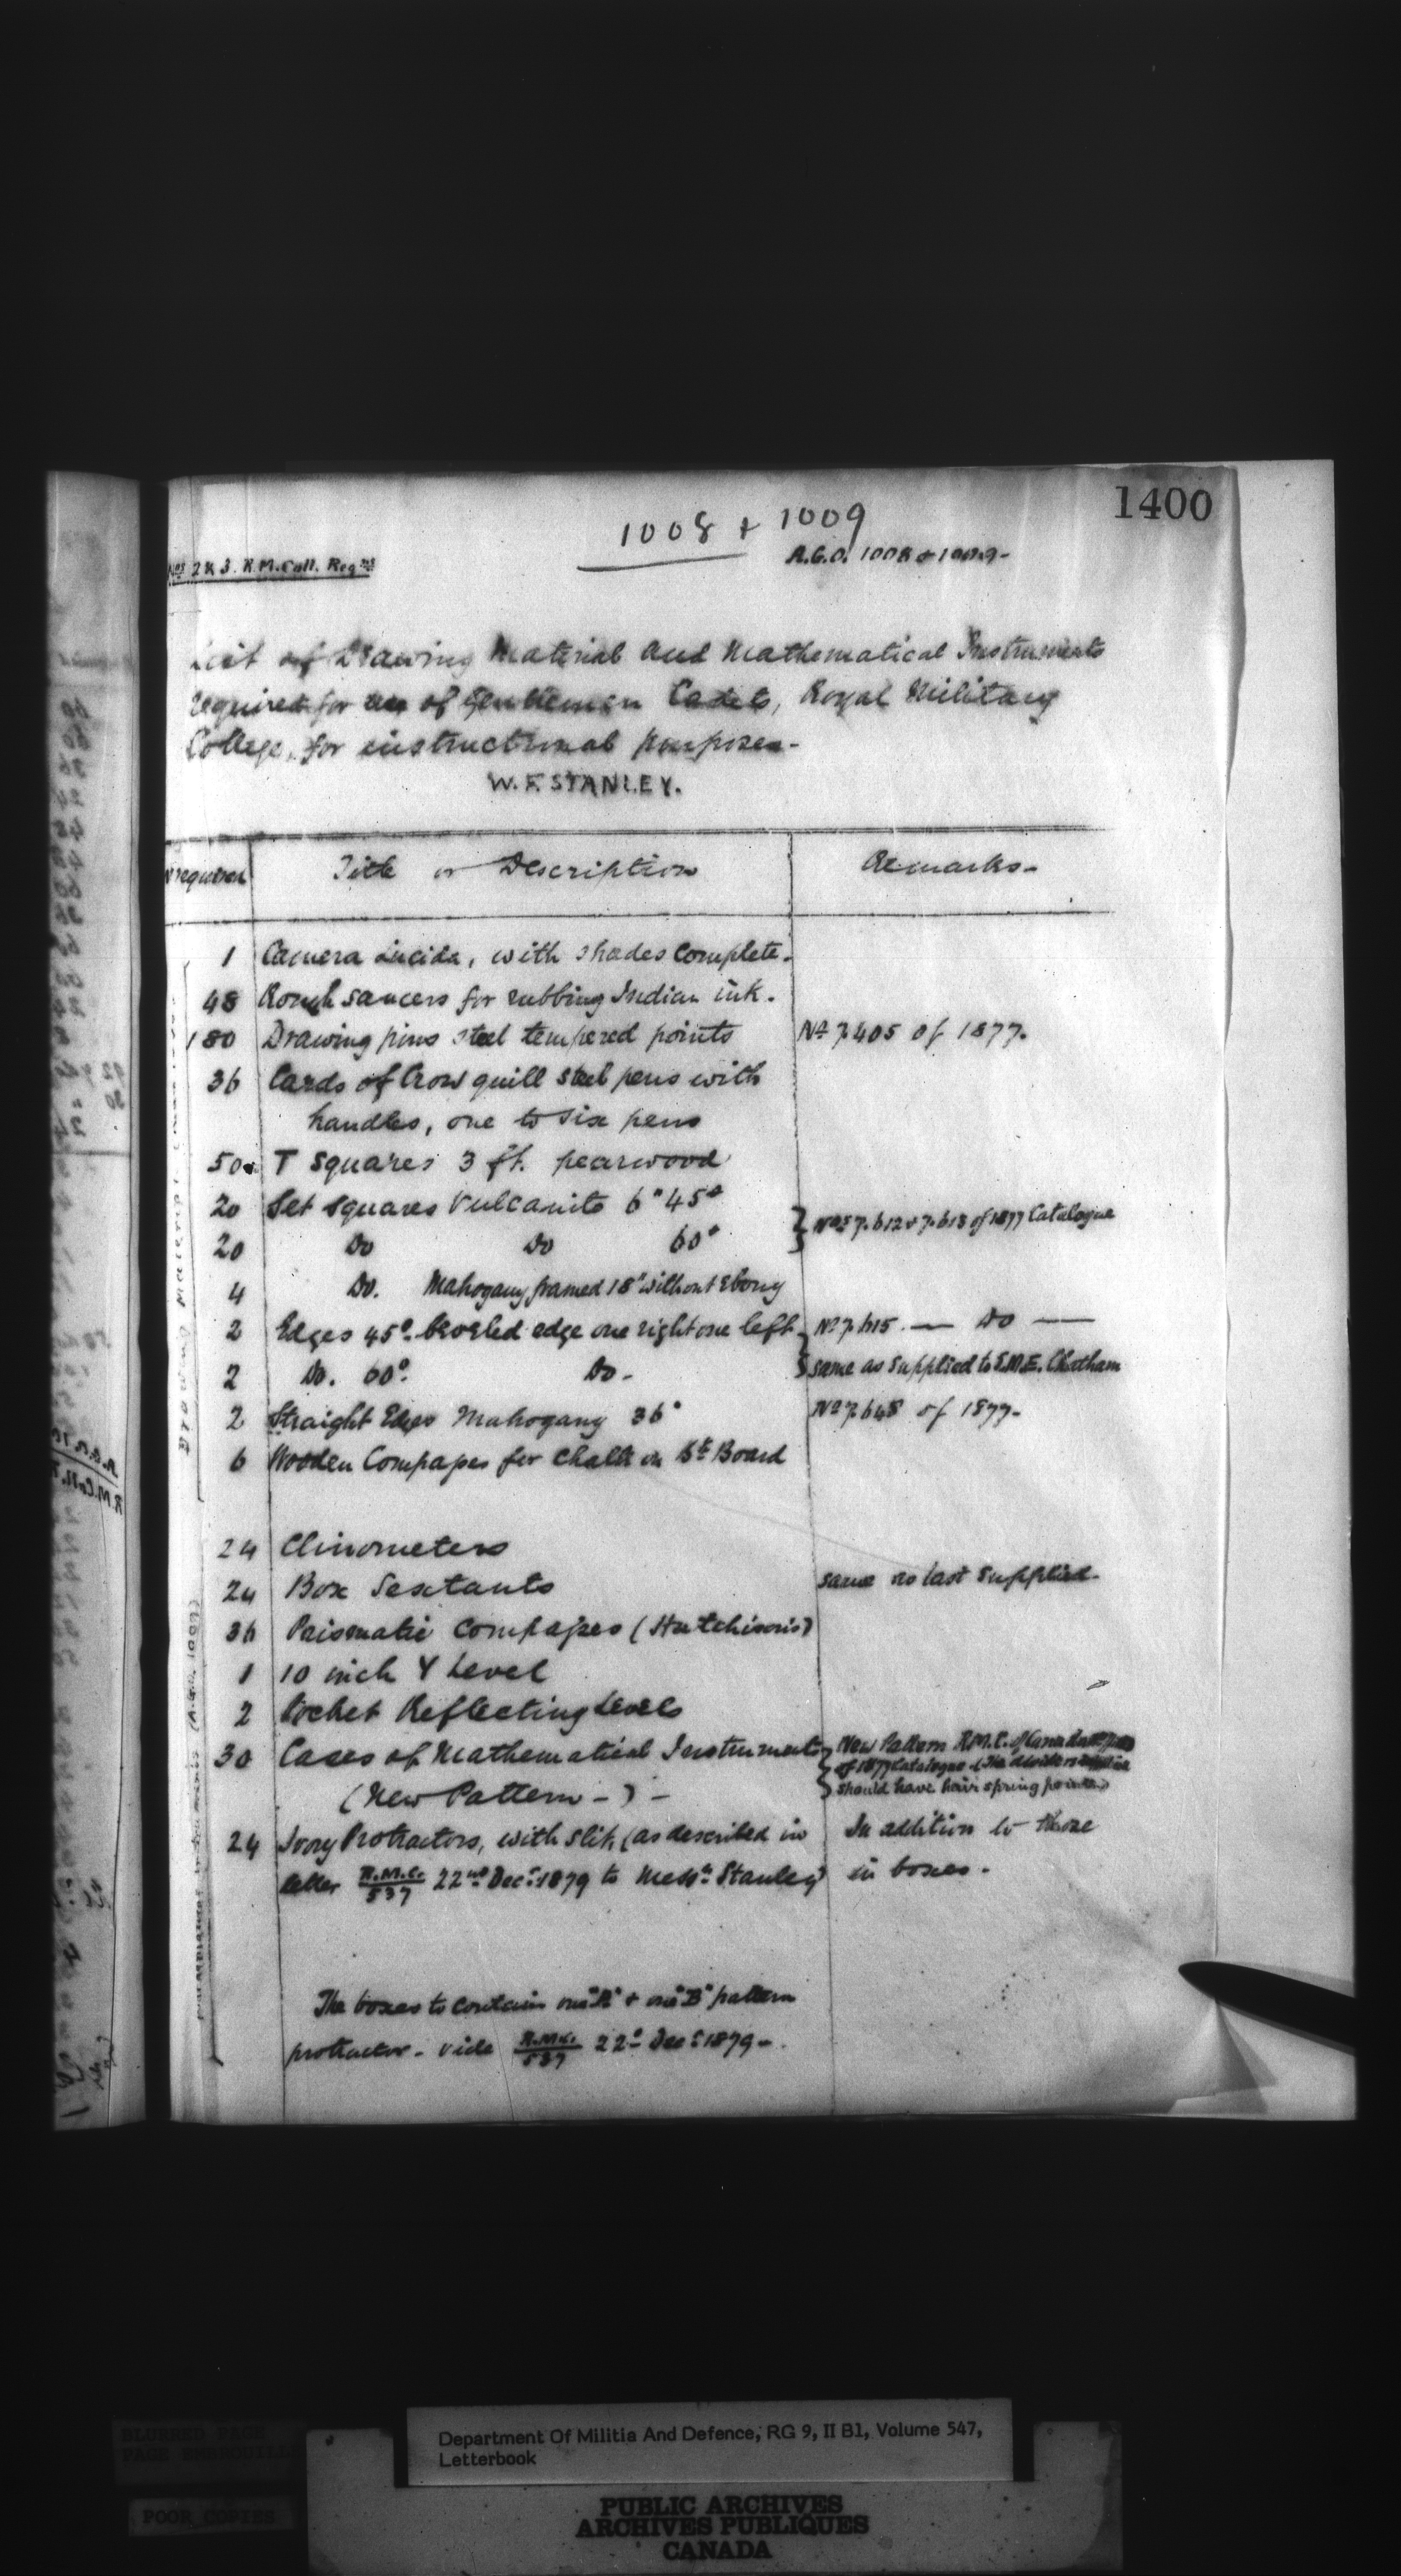 1400
1008 + 1009
A.G.O. 1008 + 1009-
Nos 2 & 3. R.M. Coll. Reqns
List of Drawing Material and Mathematical Instruments
required for use of Gentlemen Cadets, Royal Military
College, for instructional purposes-
W. F. STANLEY.
Nº required Title or Description Remarks-
1 Camera Lucida, with shades complete.
48 Rough Saucers for rubbing Indian ink.
180 Drawing pins steel tempered points Nº 7.405 of 1877.
36 Cards of Crow quill steel pens with
handles, one to six pens
50 T Squares 3 ft. pearwood
20 Set Squares Vulcanite 6" 45º
Nos 7.612 & 7.618 of 1877 Catalogue
20 Do Do 60º
4 Do. Mahogany framed 18" without Ebony
2 Edges 45º beveled edge one right one left Nº 7.615. — Do —
2 Do. 60º Do - same as supplied to S.M.E. Chatham
2 Straight Edges Mahogany 36" Nº 7.648 of 1877-
6 Wooden Compasses for Chalk on Bk Board
24 Clinometers
24 Box Sextants same as last supplied-
36 Prismatic Compasses (Hutchison's)
1 10 inch Y Level
2 Pocket Reflecting Levels
30 Cases of Mathematical Instruments New Pattern R.M.C. of Canada
of 1877 Catalogue (The dividers
(New Pattern -) - should have hair spring points)
24 Ivory Protractors, with slit, (as described in In addition to those
letter R.M.C./537 22nd Decr 1879 to Messrs Stanley) in boxes.
The boxes to contain one "A" + one "B" pattern
protractor - vide R.M.C./537 22d Decr 1879-
Department Of Militia And Defence, RG 9, II B1, Volume 547,
Letterbook
BLURRED PAGE
POOR COPIES
PUBLIC ARCHIVES
ARCHIVES PUBLIQUES
CANADA